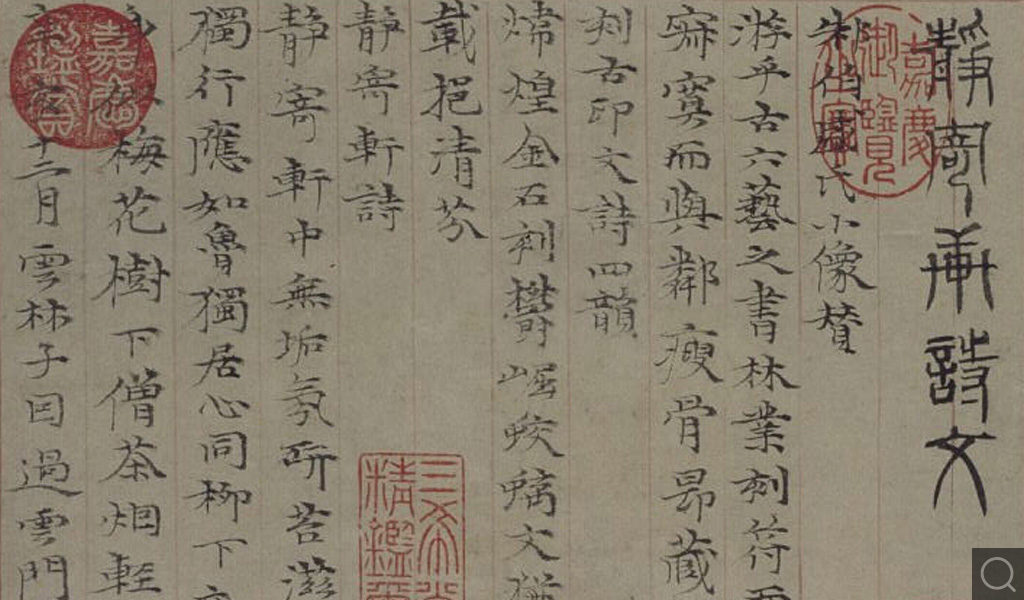 靜寄軒詩文
朱伯盛氏小像贊
游乎古六藝之書林業刻符而
寂寞而與鄰瘦骨昂藏
刻古印文詩四韻
煒煌金石刻鬱崛蛟螭文猶
載挹清芬
靜寄軒詩
靜寄軒中無垢氛研苔滋
獨行應如魯獨居心同柳下
梅花樹下僧茶烟輕
十二月雲林子因過雲門
嘉慶御覽
三希堂精鑑璽
嘉慶